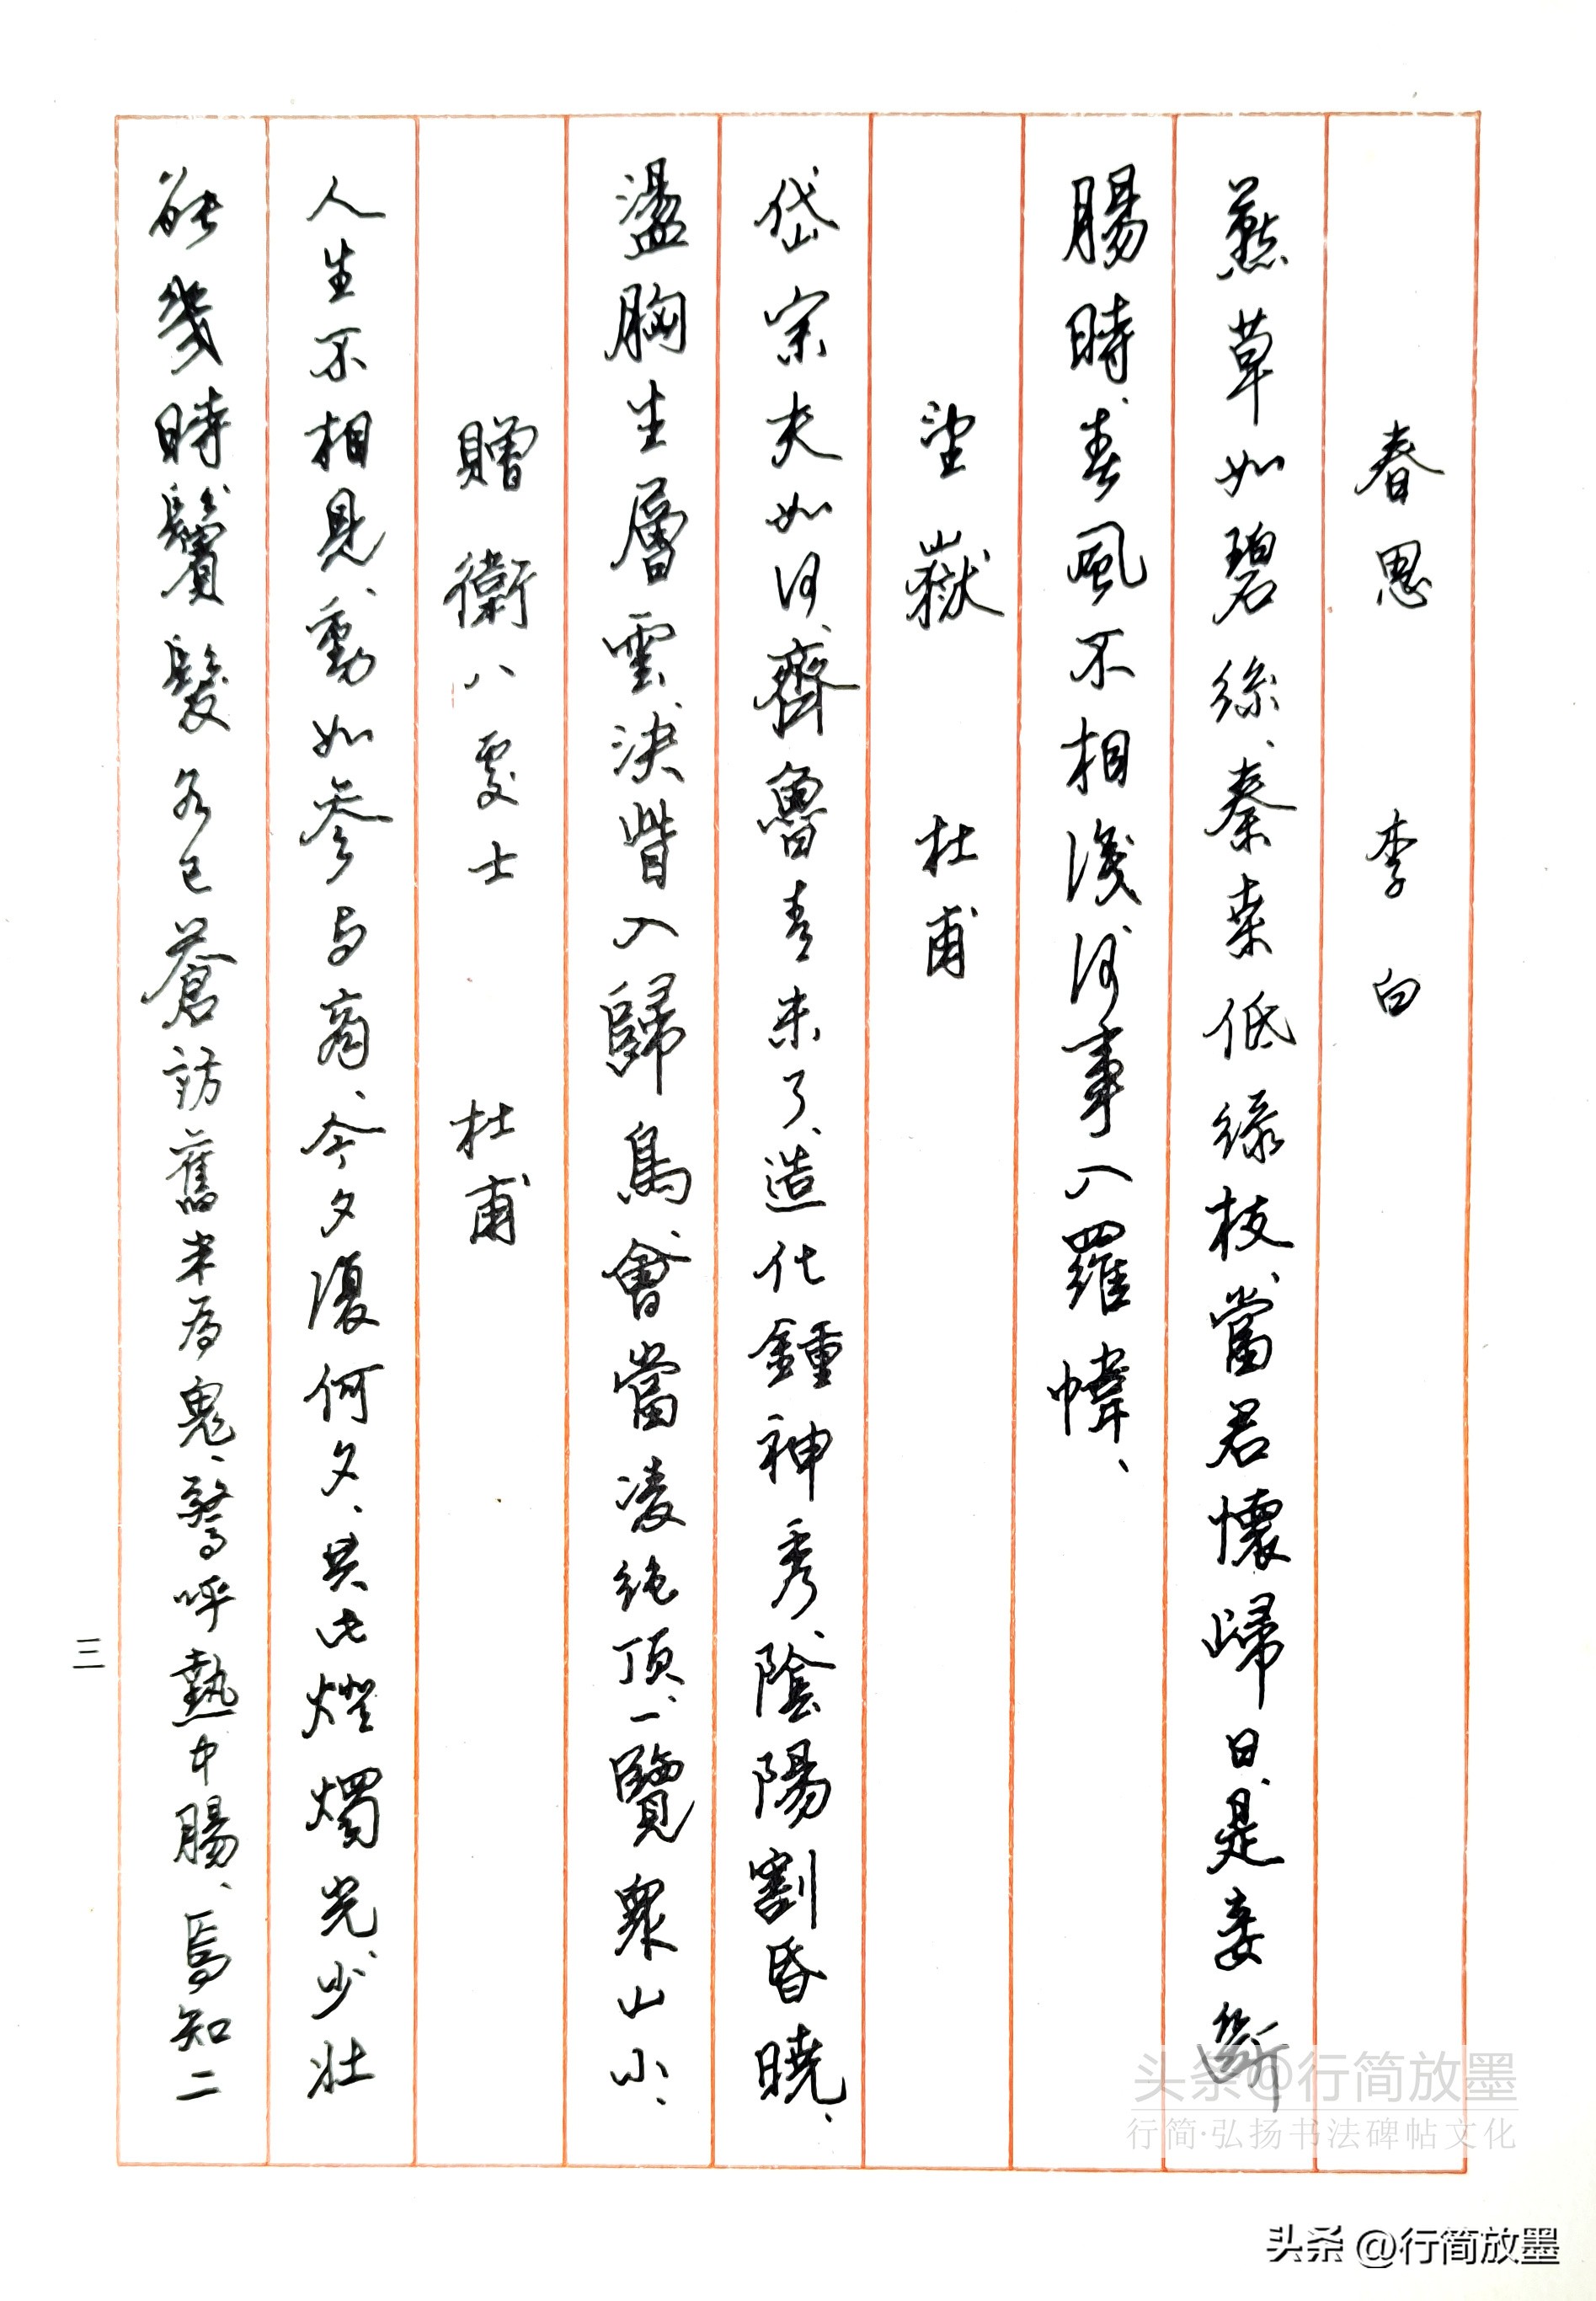 春思 李白
燕草如碧絲、秦桑低緑枝、當君懷歸日、是妾斷
腸時、春風不相識、何事入羅幃、
望嶽 杜甫
岱宗夫如何、齊魯青未了、造化鍾神秀、陰陽割昏曉、
盪胸生層雲、決眥入歸鳥、會當凌絶頂、一覽衆山小、
贈衛八處士 杜甫
人生不相見、動如參与商、今夕復何夕、共此燈燭光少壯
能幾時鬢髮各已蒼訪舊半为鬼、驚呼熱中腸、焉知二
三
头条@行简放墨
行简·弘扬书法碑帖文化
头条 @行简放墨